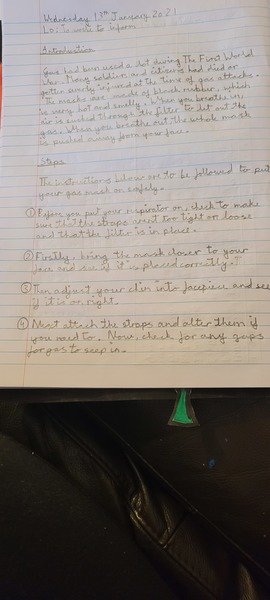 Wednesday 13th January 2021
LO: To write to inform
Introduction
Gas had been used a lot during The First World
War. Many soldiers and citizens had died or
gotten overly injured at the time of gas attacks.
The masks are made of black rubber, which
is very hot and smelly. When you breathe in,
air is sucked through the filter to let out the
gas. When you breathe out the whole mask
is pushed away from your face.
Steps
The instructions below are to be followed to put
your gas mask on safely.
① Before you put your respirator on, check to make
sure that the straps aren't too tight or loose
and that the filter is in place.
② Firstly, bring the mask closer to your
face and see if it is placed correctly.
③ Then adjust your chin into facepiece and see
if it is on right.
④ Next attach the straps and alter them if
you need to. Now, check for any gaps
for gas to seep in.